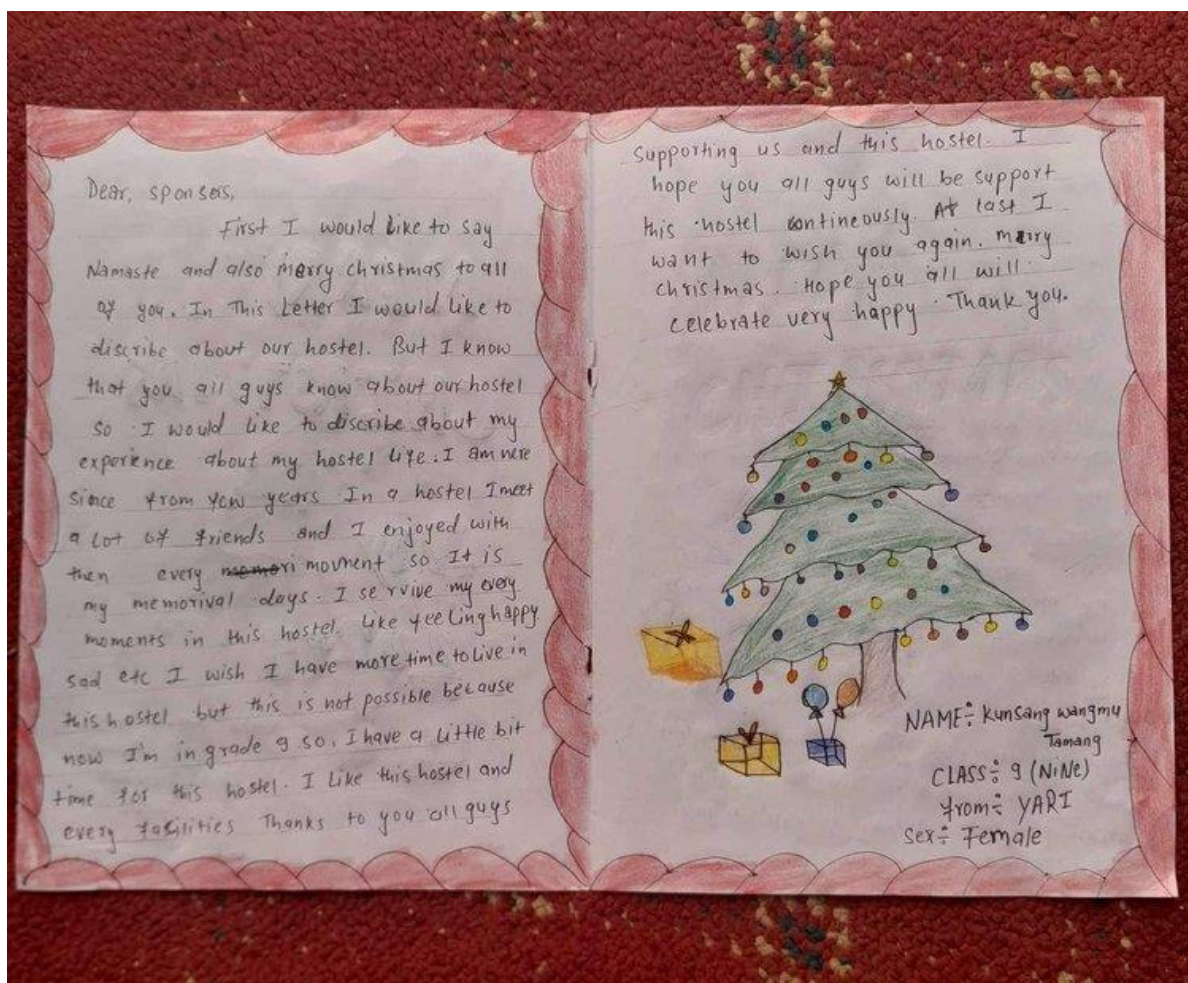 Dear, sponsors,
First I would like to say
Namaste and also merry christmas to all
of you. In This Letter I would like to
discribe about our hostel. But I know
that you all guys know about our hostel
so I would like to discribe about my
exporience about my hostel life. I am here
since from few years. In a hostel I meet
a lot of friends and I enjoyed with
then every movment so It is
my memorival days. I servive my every
moments in this hostel. Like feeling happy
sad etc I wish I have more time to live in
this hostel but this is not possible because
now I'm in grade 9 so, I have a little bit
time for this hostel. I like this hostel and
every facilities Thanks to you all guys
supporting us and this hostel. I
hope you all guys will be support
this hostel contineously. At last I
want to wish you again. merry
christmas. Hope you all will
celebrate very happy. Thank you.
NAME: Kunsang wangmu
Tamang
CLASS: 9 (NiNe)
from: YARI
Sex: Female